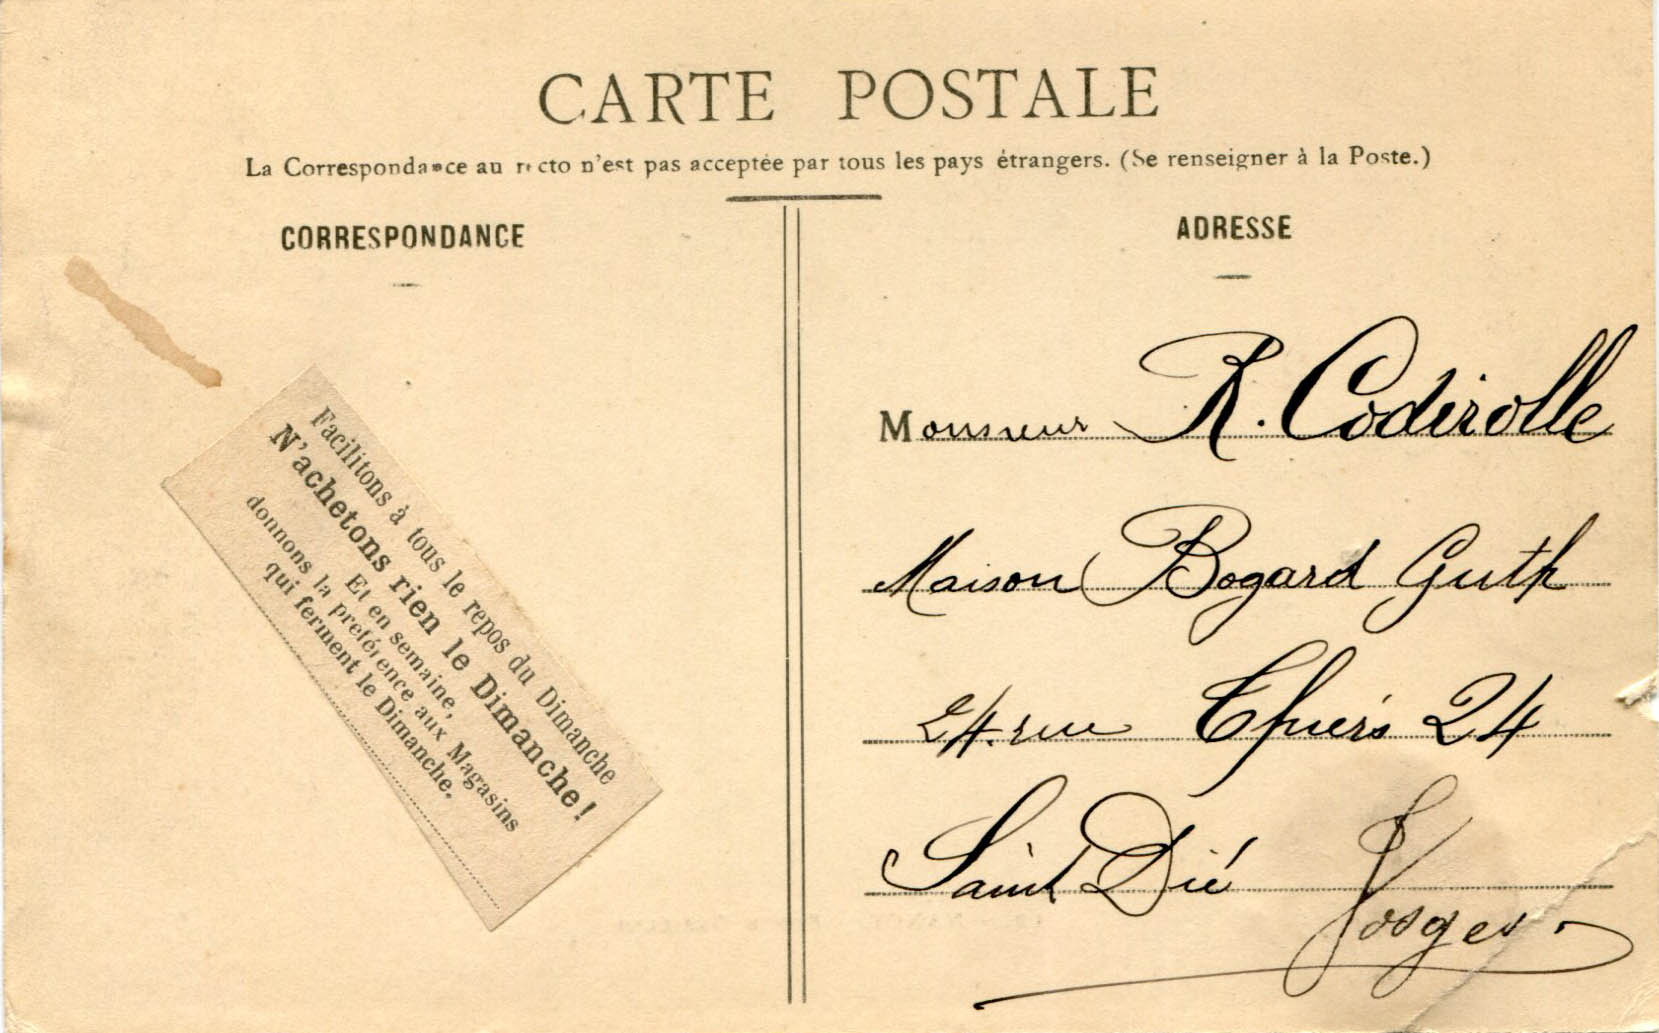 CARTE POSTALE
La Correspondance au recto n'est pas acceptée par tous les pays étrangers. (Se renseigner à la Poste.)
CORRESPONDANCE
Facilitons à tous le repos du Dimanche
N'achetons rien le Dimanche!
Et en semaine,
donnons la préférence aux Magasins
qui ferment le Dimanche.
ADRESSE
Monsieur R. Coderolle
Maison Bogard Guth
24. rue Thiers 24
Saint Dié Vosges.